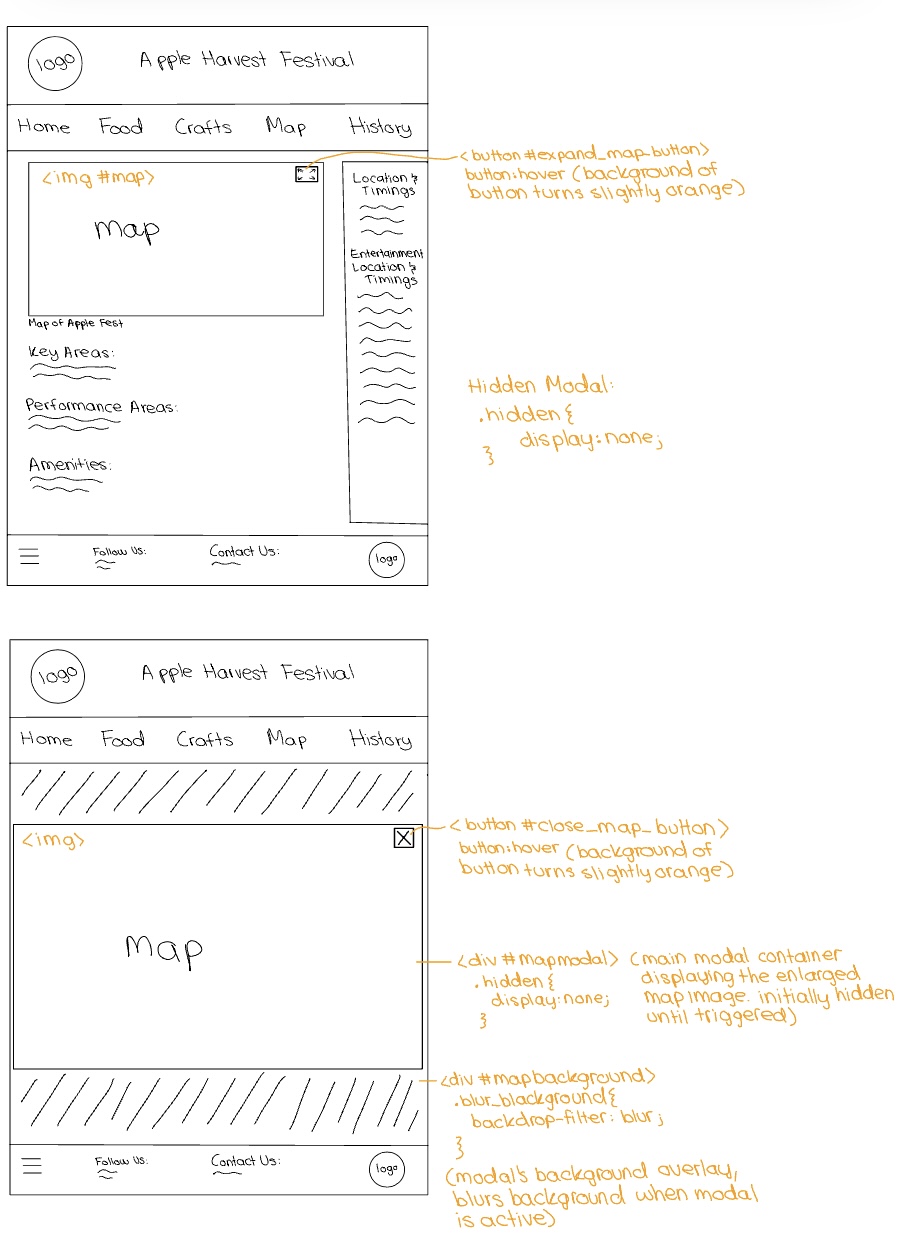 logo
Apple Harvest Festival
Home Food Crafts Map History
<img #map>
map
Map of Apple Fest
Key Areas:
Performance Areas:
Amenities:
Location &
Timings
Entertainment
Location &
Timings
<button #expand_map_button>
button:hover (background of
button turns slightly orange)
Hidden Modal:
.hidden {
display:none;
}
Follow Us:
Contact Us:
logo
logo
Apple Harvest Festival
Home Food Crafts Map History
<img>
X
Map
<button #close_map_button>
button:hover (background of
button turns slightly orange)
<div #mapmodal> (main modal container
.hidden { displaying the enlarged
display:none; map image. initially hidden
} until triggered)
<div #mapbackground>
.blur_blackground{
backdrop-filter: blur;
}
(modal's background overlay,
blurs background when modal
is active)
Follow Us:
Contact Us:
logo